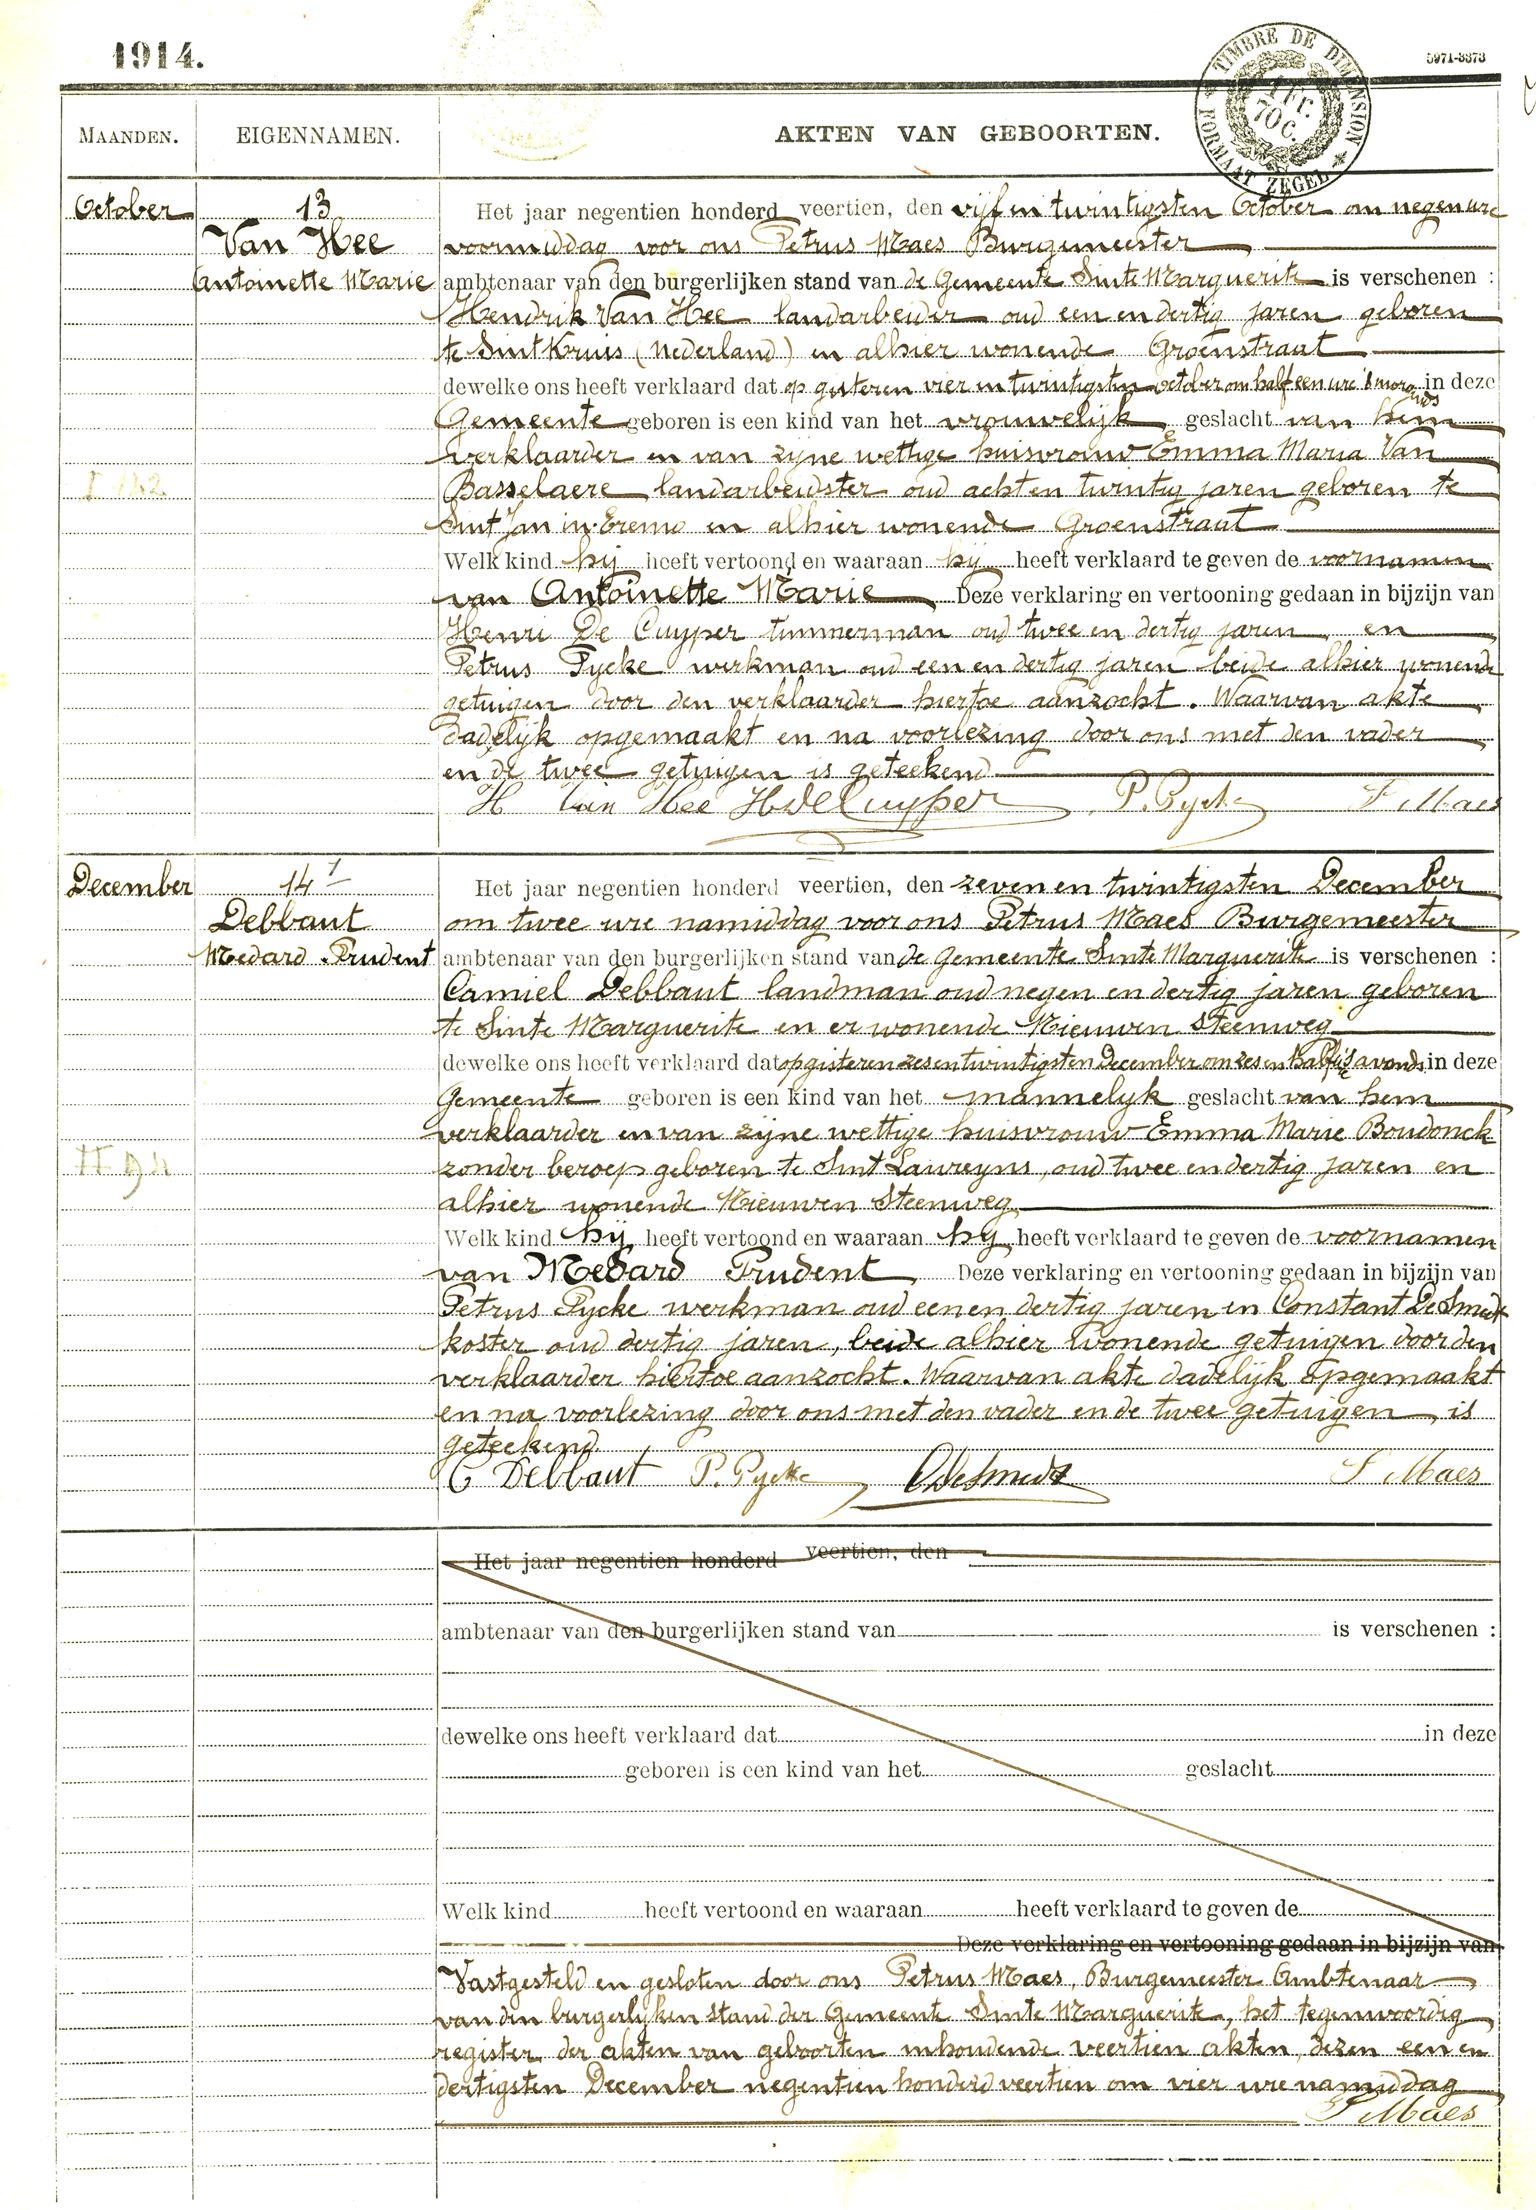 1914.
TIMBRE DE DIMENSION
1 Fr.
70 C.
FORMAAT ZEGEL
5971-3373
MAANDEN.
EIGENNAMEN.
AKTEN VAN GEBOORTEN.
October
13
Van Hee
Antoinette Marie
I 142
Het jaar negentien honderd veertien, den vijf en twintigsten October om negen ure
voormiddag voor ons Petrus Maes Burgemeester
ambtenaar van den burgerlijken stand van de Gemeente Sinte Marguerite is verschenen :
Hendrik Van Hee landarbeider oud een en dertig jaren geboren
te Sint Kruis (Nederland) en alhier wonende Groenstraat
dewelke ons heeft verklaard dat op gisteren vier en twintigsten october om half een ure 's morgends in deze
Gemeente geboren is een kind van het vrouwelijk geslacht van hem
verklaarder en van zijne wettige huisvrouw Emma Maria Van
Basselaere landarbeidster oud acht en twintig jaren geboren te
Sint Jan in Eremo en alhier wonende Groenstraat
Welk kind hij heeft vertoond en waaraan hij heeft verklaard te geven de voornamen
van Antoinette Marie Deze verklaring en vertooning gedaan in bijzijn van
Henri De Cuyper timmerman oud twee en dertig jaren en
Petrus Pycke werkman oud een en dertig jaren beide alhier wonende
getuigen door den verklaarder hiertoe aanzocht. Waarvan akte
dadelijk opgemaakt en na voorlezing door ons met den vader
en de twee getuigen is geteekend
H Van Hee H De Cuyper P. Pycke P Maes
December
14
Debbaut
Medard Prudent
II 94
Het jaar negentien honderd veertien, den zeven en twintigsten December
om twee ure namiddag voor ons Petrus Maes Burgemeester
ambtenaar van den burgerlijken stand van de Gemeente Sinte Marguerite is verschenen :
Camiel Debbaut landman oud negen en dertig jaren geboren
te Sinte Marguerite en er wonende Nieuwen Steenweg
dewelke ons heeft verklaard dat op gisteren zes en twintigsten December om zes en half ure 's avonds in deze
Gemeente geboren is een kind van het mannelijk geslacht van hem
verklaarder en van zijne wettige huisvrouw Emma Marie Boudonck
zonder beroep geboren te Sint Laureyns, oud twee en dertig jaren en
alhier wonende Nieuwen Steenweg
Welk kind hij heeft vertoond en waaraan hij heeft verklaard te geven de voornamen
van Medard Prudent Deze verklaring en vertooning gedaan in bijzijn van
Petrus Pycke werkman oud een en dertig jaren en Constant De Smedt
koster oud dertig jaren, beide alhier wonende getuigen door den
verklaarder hiertoe aanzocht. Waarvan akte dadelijk opgemaakt
en na voorlezing door ons met den vader en de twee getuigen is
geteekend
C Debbaut P. Pycke C De Smedt P Maes
Het jaar negentien honderd veertien, den
ambtenaar van den burgerlijken stand van is verschenen :
dewelke ons heeft verklaard dat in deze
geboren is een kind van het geslacht
Welk kind heeft vertoond en waaraan heeft verklaard te geven de
Deze verklaring en vertooning gedaan in bijzijn van
Vastgesteld en gesloten door ons Petrus Maes, Burgemeester Ambtenaar
van den burgerlijken stand der Gemeente Sinte Marguerite, het tegenwoordig
register der akten van geboorten inhoudende veertien akten, dezen een en
dertigsten December negentien honderd veertien om vier ure namiddag
P Maes